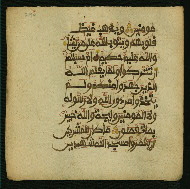 قوم مومنين ويذهب غيظ
قلوبهم ويتوب الله على من يشا
والله عليم حكيم ام حسبتم
ان تتركوا ولما يعلم الله
الذين جهدوا منكم ولم
يتخذوا من دون الله ولا رسوله
ولا المومنين وليجة والله خبير
بما تعملون ما كان للمشركين
ان يعمروا مسجد الله شهدين